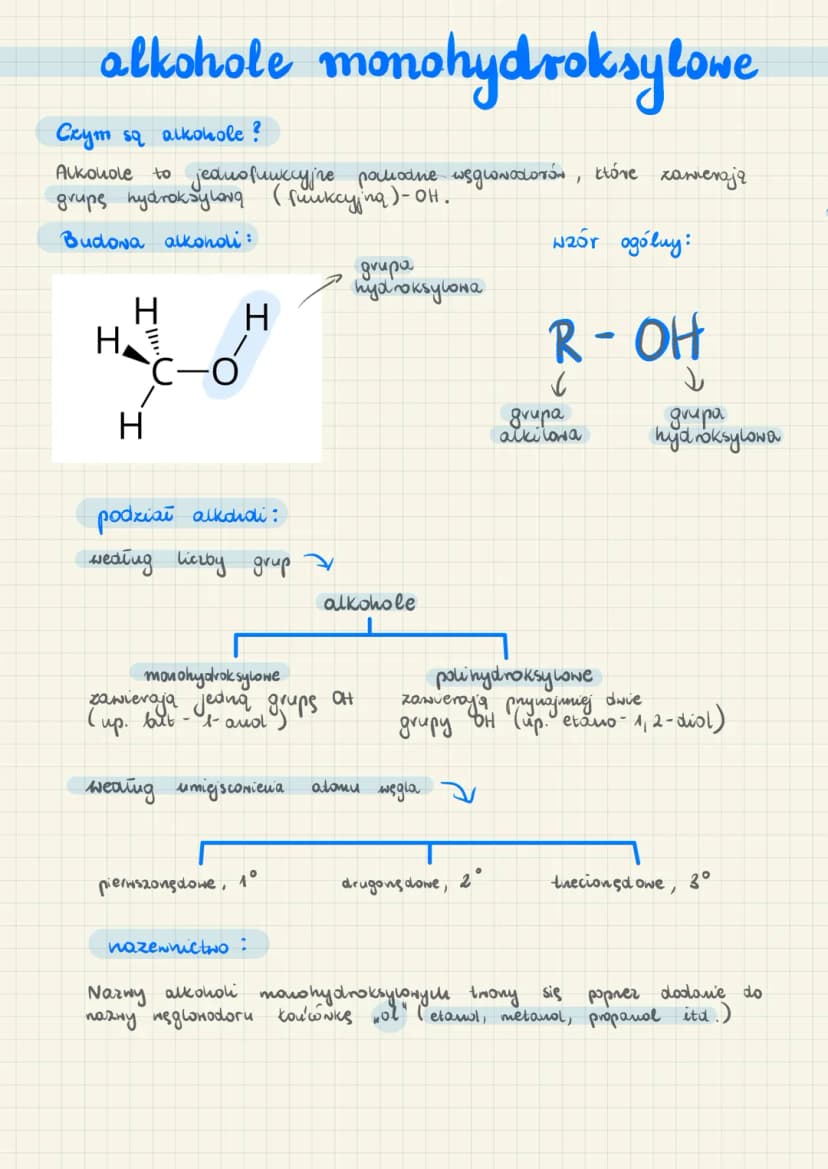 alkohole monohydroksylowe
Czym są alkohole?
Alkohole to jednofunkcyjne pochodne węglowodorów, które zawierają
grupę hydroksylową (funkcyjną) - OH.
Budowa alkoholi:
wzór ogólny:
grupa
hydroksylowa
H
H
H
C
O
H
R - OH
grupa
alkilowa
grupa
hydroksylowa
podział alkoholi:
według liczby grup
alkohole
monohydroksylowe
zawierają jedną grupę OH
(np. but - 1- anol)
polihydroksylowe
zawierają przynajmniej dwie
grupy OH (np. etano - 1, 2 - diol)
według umiejscowienia atomu węgla
pierwszorzędowe, 1°
drugorzędowe, 2°
trzeciorzędowe, 3°
nazewnictwo:
Nazwy alkoholi monohydroksylowych tworzy się poprzez dodanie do
nazwy węglowodoru końcówkę „ol" (etanol, metanol, propanol itd.)